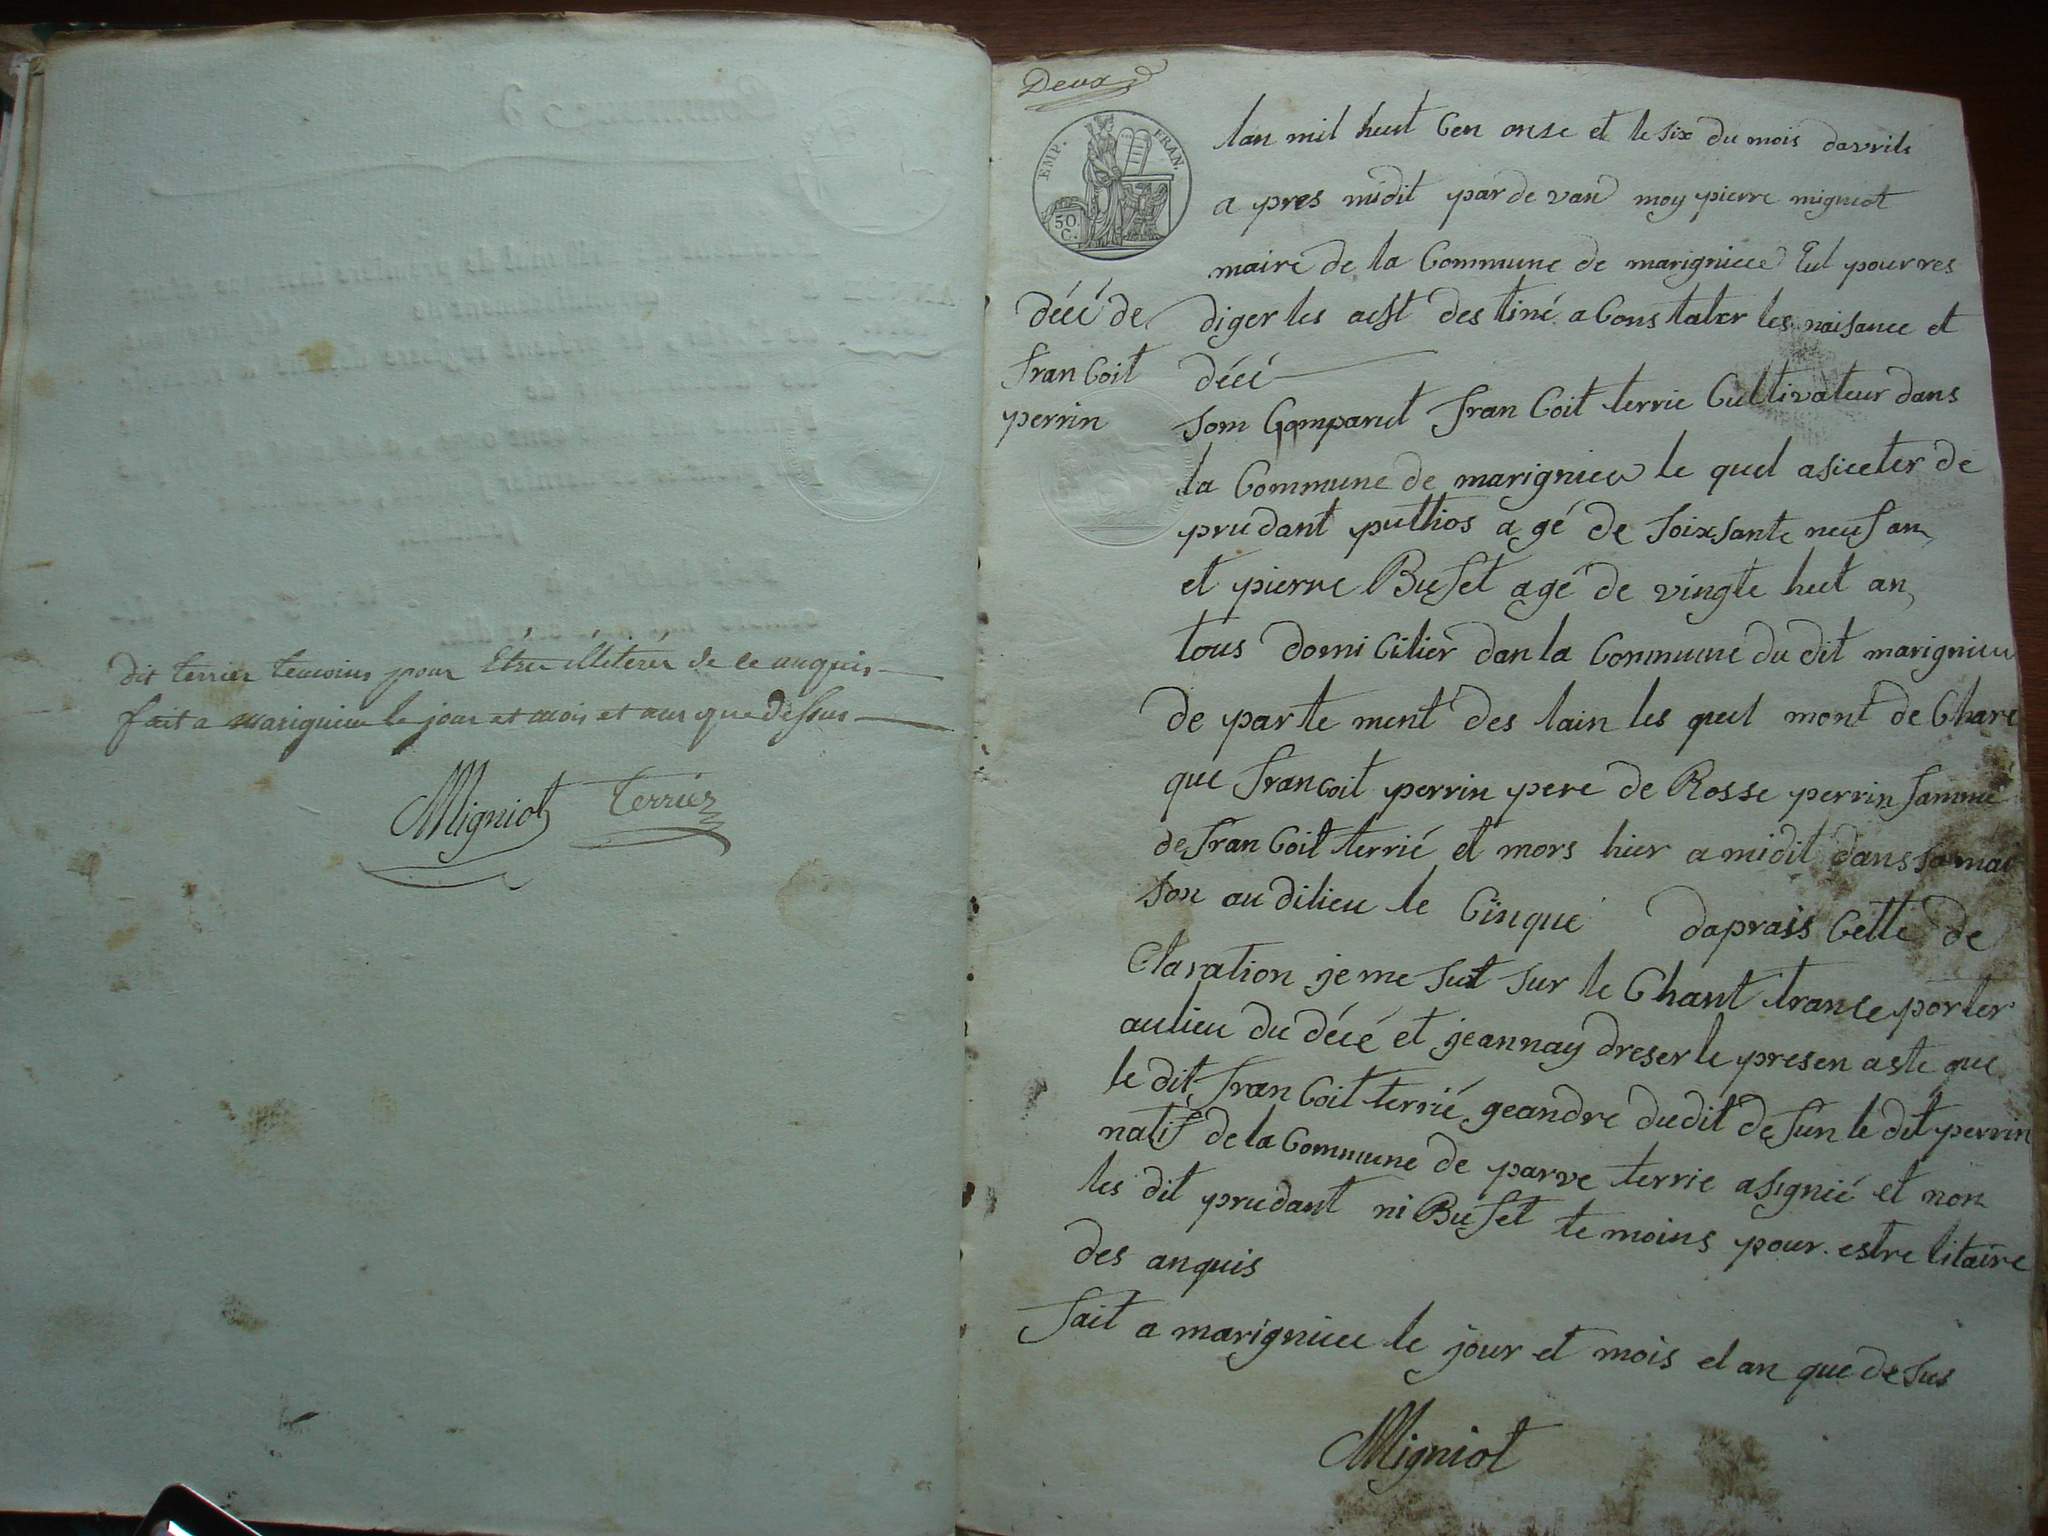 dit terrier temoins pour Etre illiterér de ce anquis
fait a marignieu le jour et mois et ans que dessus
Migniot Terrier
Deux
EMP. FRAN.
50 C.
décé de
fran Coit
perrin
lan mil heut Cen onse et le six du mois davrils
a pres midit par de van moy pierre migniot
maire de la Commune de marignieu Eul pour res
diger les acst des tiné a Cons tater les naisance et
décé
som Comparut fran Coit terrie Cultivateur dans
la Commune de marignieu le quel asiceter de
prudant puthios a gé de soixsante neuf an
et pierre Bufet agé de vingte heut an
tous domi Cilier dan la Commune du dit marignieu
de par te ment des lain les quel mont de Clare
que francoit perrin pere de Rosse perrin famme
de fran Coit terrié et mors hier a midit dans sa mai
son au dilieu le Cinque daprais Cette de
Claration je me suit sur le Chant transe porter
aulieu du décé et jeannay dreser le presen aste que
le dit fran Coit terrié geandre dudit de fun le dit perrin
natif de la Commune de parve terrie a signié et non
les dit prudant ni Bufet te moins pour estre litaire
des anquis
fait a marignieu le jour et mois et an que de sus
Migniot